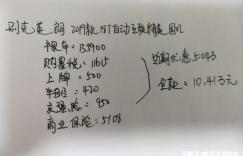 别克英朗 2019款 18T自动互联精英 国Ⅵ
裸车: 135900
购置税: 11615
上牌: 500
车船: 420
交强险: 950
商业保险: 5108
近期优惠 5.043
全款: 10.413万元